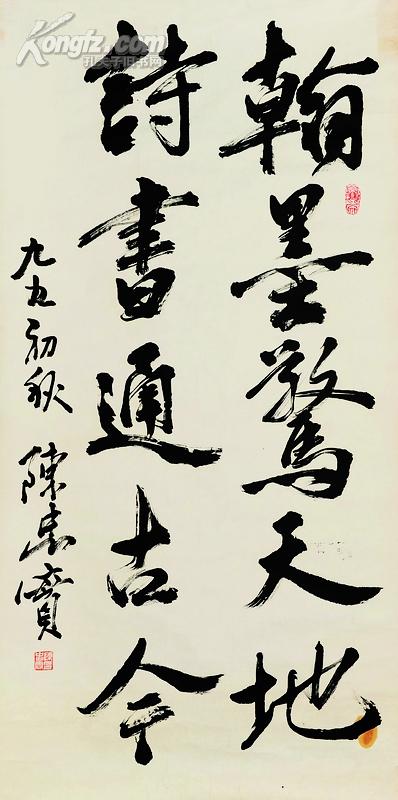 翰墨驚天地
詩書通古今
九五初秋 陳忠實
Kongfz.com
孔夫子旧书网